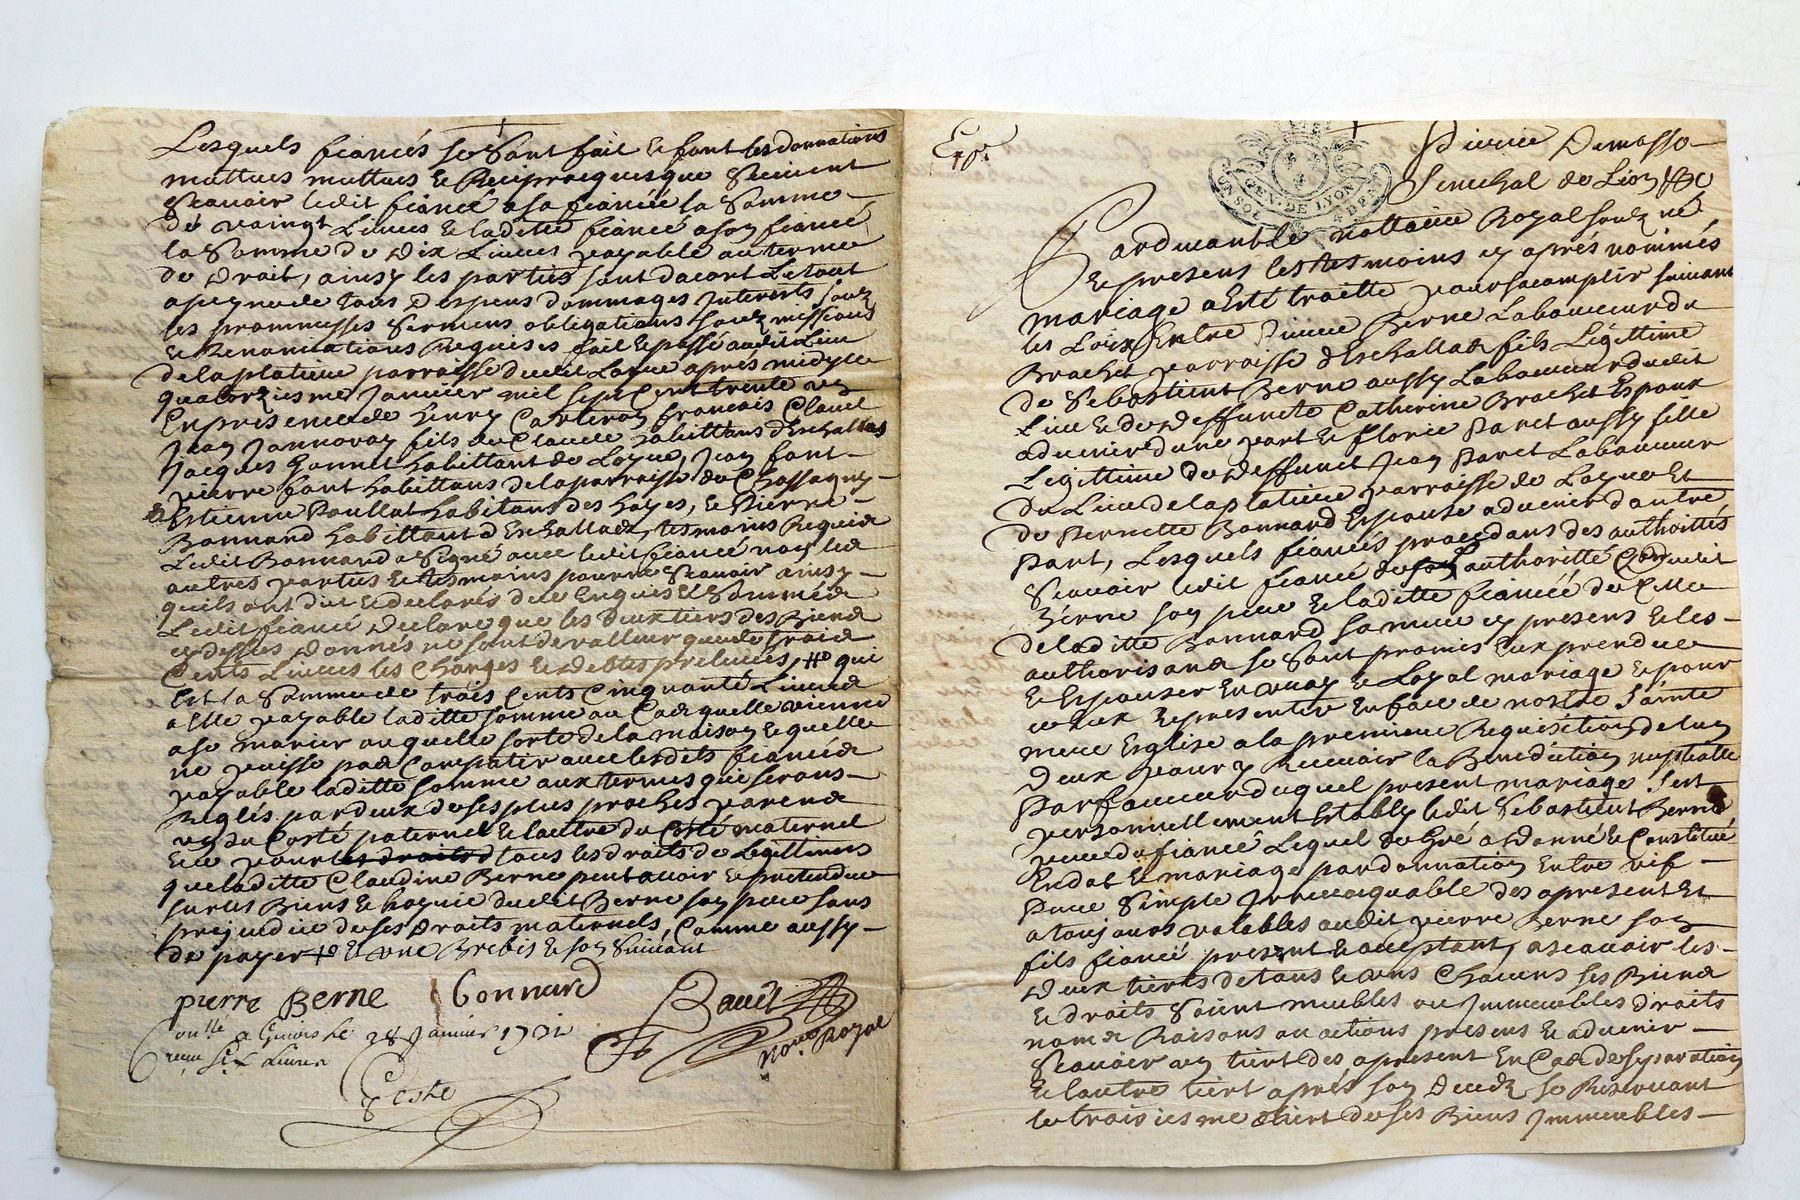 Lesquels fiancés se sont fait et font les donnations
mutues muttues et Reciproques que suivent
scauoir ledit fiancé a sa fiancéé la somme
de vaingt Liures et laditte fiancé a son fiancé
la somme de dix Liures payable au terme
de droit, ainsy les parties sont dacort Le tout
a peyne de tous despens dommages Interests soub
les prommesses sermens obligations soubmissions
et Renonciations Requises fait et passé audit Lieu
de la platiere parroisse dudit Loyre aprés midy le
quatorziesme Januier mil sept cent trente un
En presence de henry francois Claud
Jean fils de Claude habittans dEschallas
Jacques habittant de Loyre, Jean font
pierre font habittans de la parroisse de Chassagny
Estienne habitans des hayes, et Pierre
Bonnard habittant dEschallas, tesmoins Requis
Ledit Bonnard a signé auec ledit fiancé non les
autres parties et tesmoins pour ne scauoir ainsy
quils ont dit et declarés de ce Enquis et sommés
Ledit fiancé declare que les deux tiers des Biens
cy dessus donnés ne sont de valleur que de trois
Cents Liures les Charges et debtes preleuées, qui
Est la somme de trois Cents Cinquante Liures
a Elle payable laditte somme au Cas quelle vienne
a se marier ou quelle sorte de la maison et quelle
ne puisse pas Compatir auec lesdits fiancés
payable laditte somme aux termes que serons
Reglés par deux de ses plus proches parens
un du Costé paternel et lautre du Costé maternel
Et ce pour les droits tous les droits de Legittimes
que laditte Claudine Berne peut auoir et pretendre
sur les Biens et hoyrie dudit Berne son pere sans
prejudice de ses droits maternels, Comme aussy
de payer et une Brebis et son suiuant
pierre Berne Bonnard
Baud
no.re Royal
Con.lle a Giuors le 28 Januier 1731
receu six Liures
Teste
Exp.
GEN. DE LYON
UN SOL 4 DEN
Pierre Demasso
Senechal de Lion &c
Pardeuant le nottaire Royal soubzné
et presens les tesmoins cy aprés nommés
mariage a Esté traitté pour sacomplir suiuant
les Loix Entre Pierre Berne Laboureur du
Brachet parroisse dEschallas fils Légittime
de Sebastient Berne aussy Laboureur dudit
Lieu et de deffuncte Catherine Brachet Espoux
aduenir dune part et florie Paret aussy fille
Legittime de deffunct Jean Paret Laboureur
du Lieu de la platiere parroisse de Loyre Et
de Pernette Bonnard Espouse aduenir dautre
part, Lesquels fiancés procedans des authorittés
scauoir ledit fiancé de son authoritté dudit
Berne son pere et laditte fiancéé de Celle
de laditte Bonnard sa mere cy presens et les
authorisans se sont promis Eux prendre
et Espouser En vray et Loyal mariage et pour
ce Eux representer En face de nostre sainte
mere Esglise a la premiere Requisition de lun
deux pour y Receuoir la Benediction nuptialle
Par faueur duquel present mariage sest
personnellement Estably ledit Sebastient Berne
pere du fiancé Lequel de Gré a donné et Constitué
En dot et mariage par donnation Entre vif
Pure simple Irreuoquable des apresent Et
a tousjours valables audit pierre Berne son
fils fiancé present et acceptant, a scauoir les
deux tiers de tous et uns Chacuns ses Biens
et droits soient meubles ou Immeubles droits
noms Raisons ou actions presens et aduenir
scauoir un tiert des apresent En Cas de separation
Et lautre tiert aprés son decedz se Reseruant
le troisiesme tiert de ses Biens Immeubles